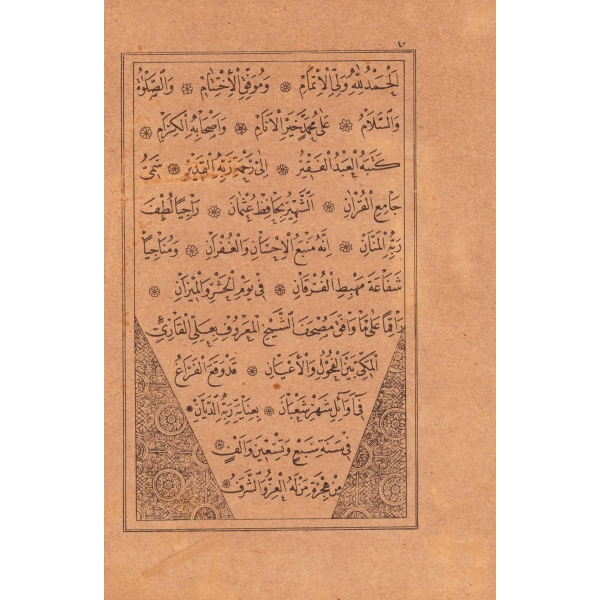 ٤٠
الْحَمْدُ لِلّٰهِ وَلِيِّ الْاِتْمَامِ ۞ وَمُوَفِّقِ الْاِخْتِتَامِ ۞ وَالصَّلٰوةُ
وَالسَّلَامُ ۞ عَلٰى مُحَمَّدٍ خَيْرِ الْاَنَامِ ۞ وَاَصْحَابِهِ الْكِرَامِ ۞
كَتَبَهُ الْعَبْدُ الْفَقِيرُ ۞ اِلٰى رَحْمَةِ رَبِّهِ الْقَدِيرِ ۞ سَمِيُّ
جَامِعِ الْقُرْاٰنِ ۞ الشَّهِيرُ بِحَافِظِ عُثْمَانَ ۞ رَاجِيًا لُطْفَ
رَبِّهِ الْمَنَّانِ ۞ اِنَّهُ مَنْبَعُ الْاِحْسَانِ وَالْغُفْرَانِ ۞ وَمُنَاجِيًا
شَفَاعَةَ مَهْبِطِ الْفُرْقَانِ ۞ فِي يَوْمِ الْحَشْرِ وَالْمِيزَانِ ۞
رَاقِمًا عَلٰى مَا وَافَقَ مُصْحَفَ الشَّيْخِ الْمَعْرُوفِ بِعَلِيٍّ الْقَارِئِ
الْمَكِّيِّ بَيْنَ الْفُحُولِ وَالْاَعْيَانِ ۞ قَدْ وَقَعَ الْفَرَاغُ
فِي اَوَائِلِ شَهْرِ شَعْبَانَ ۞ بِعِنَايَةِ رَبِّهِ الدَّيَّانِ
فِي سَنَةِ سَبْعٍ وَتِسْعِينَ وَاَلْفٍ ۞
مِنْ هِجْرَةِ مَنْ لَهُ الْعِزُّ وَالشَّرَفُ ۞